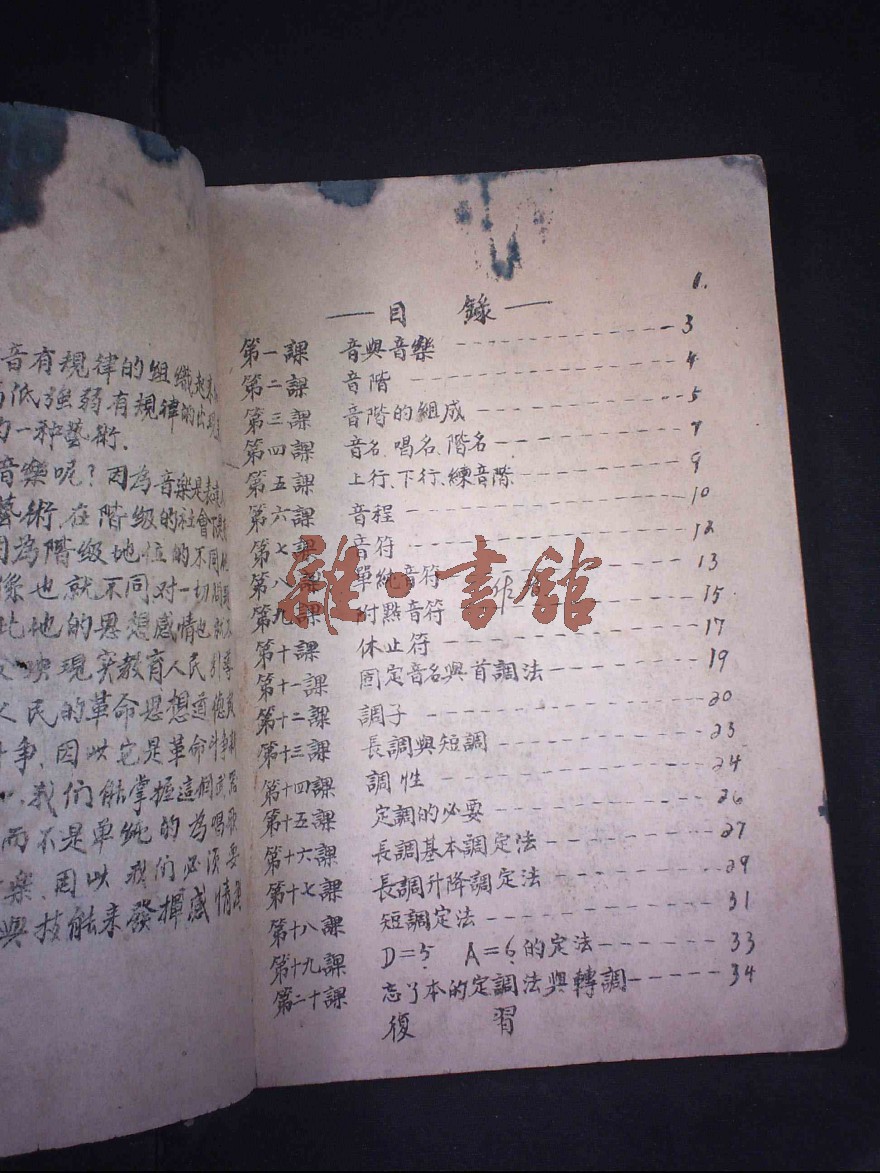 音有規律的組織起來
高低强弱有規律的出現
的一种藝術.
音樂呢?因為音樂是表達
藝術.在階級的社會下
因為階級地位的不同
像也就不同对一切問題
此地的思想感情也就不
反映現实教育人民引導
人民的革命思想道德
斗争.因此它是革命斗争
我們能掌握這個武器
而不是单纯的為唱歌
樂.因此我們必須要
與技能来發揮感情
1.
—目 錄—
第一課 音與音樂 3
第二課 音階 4
第三課 音階的組成 5
第四課 音名.唱名.階名 7
第五課 上行.下行.練音階 9
第六課 音程 10
第七課 音符 12
第八課 單純音符 13
第九課 附點音符 15
第十課 休止符 17
第十一課 固定音名與首調法 19
第十二課 調子 20
第十三課 長調與短調 23
第十四課 調性 24
第十五課 定調的必要 26
第十六課 長調基本調定法 27
第十七課 長調升降調定法 29
第十八課 短調定法 31
第十九課 D=5 A=6的定法 33
第二十課 忘了本的定調法與轉調 34
復 習
雜·書館